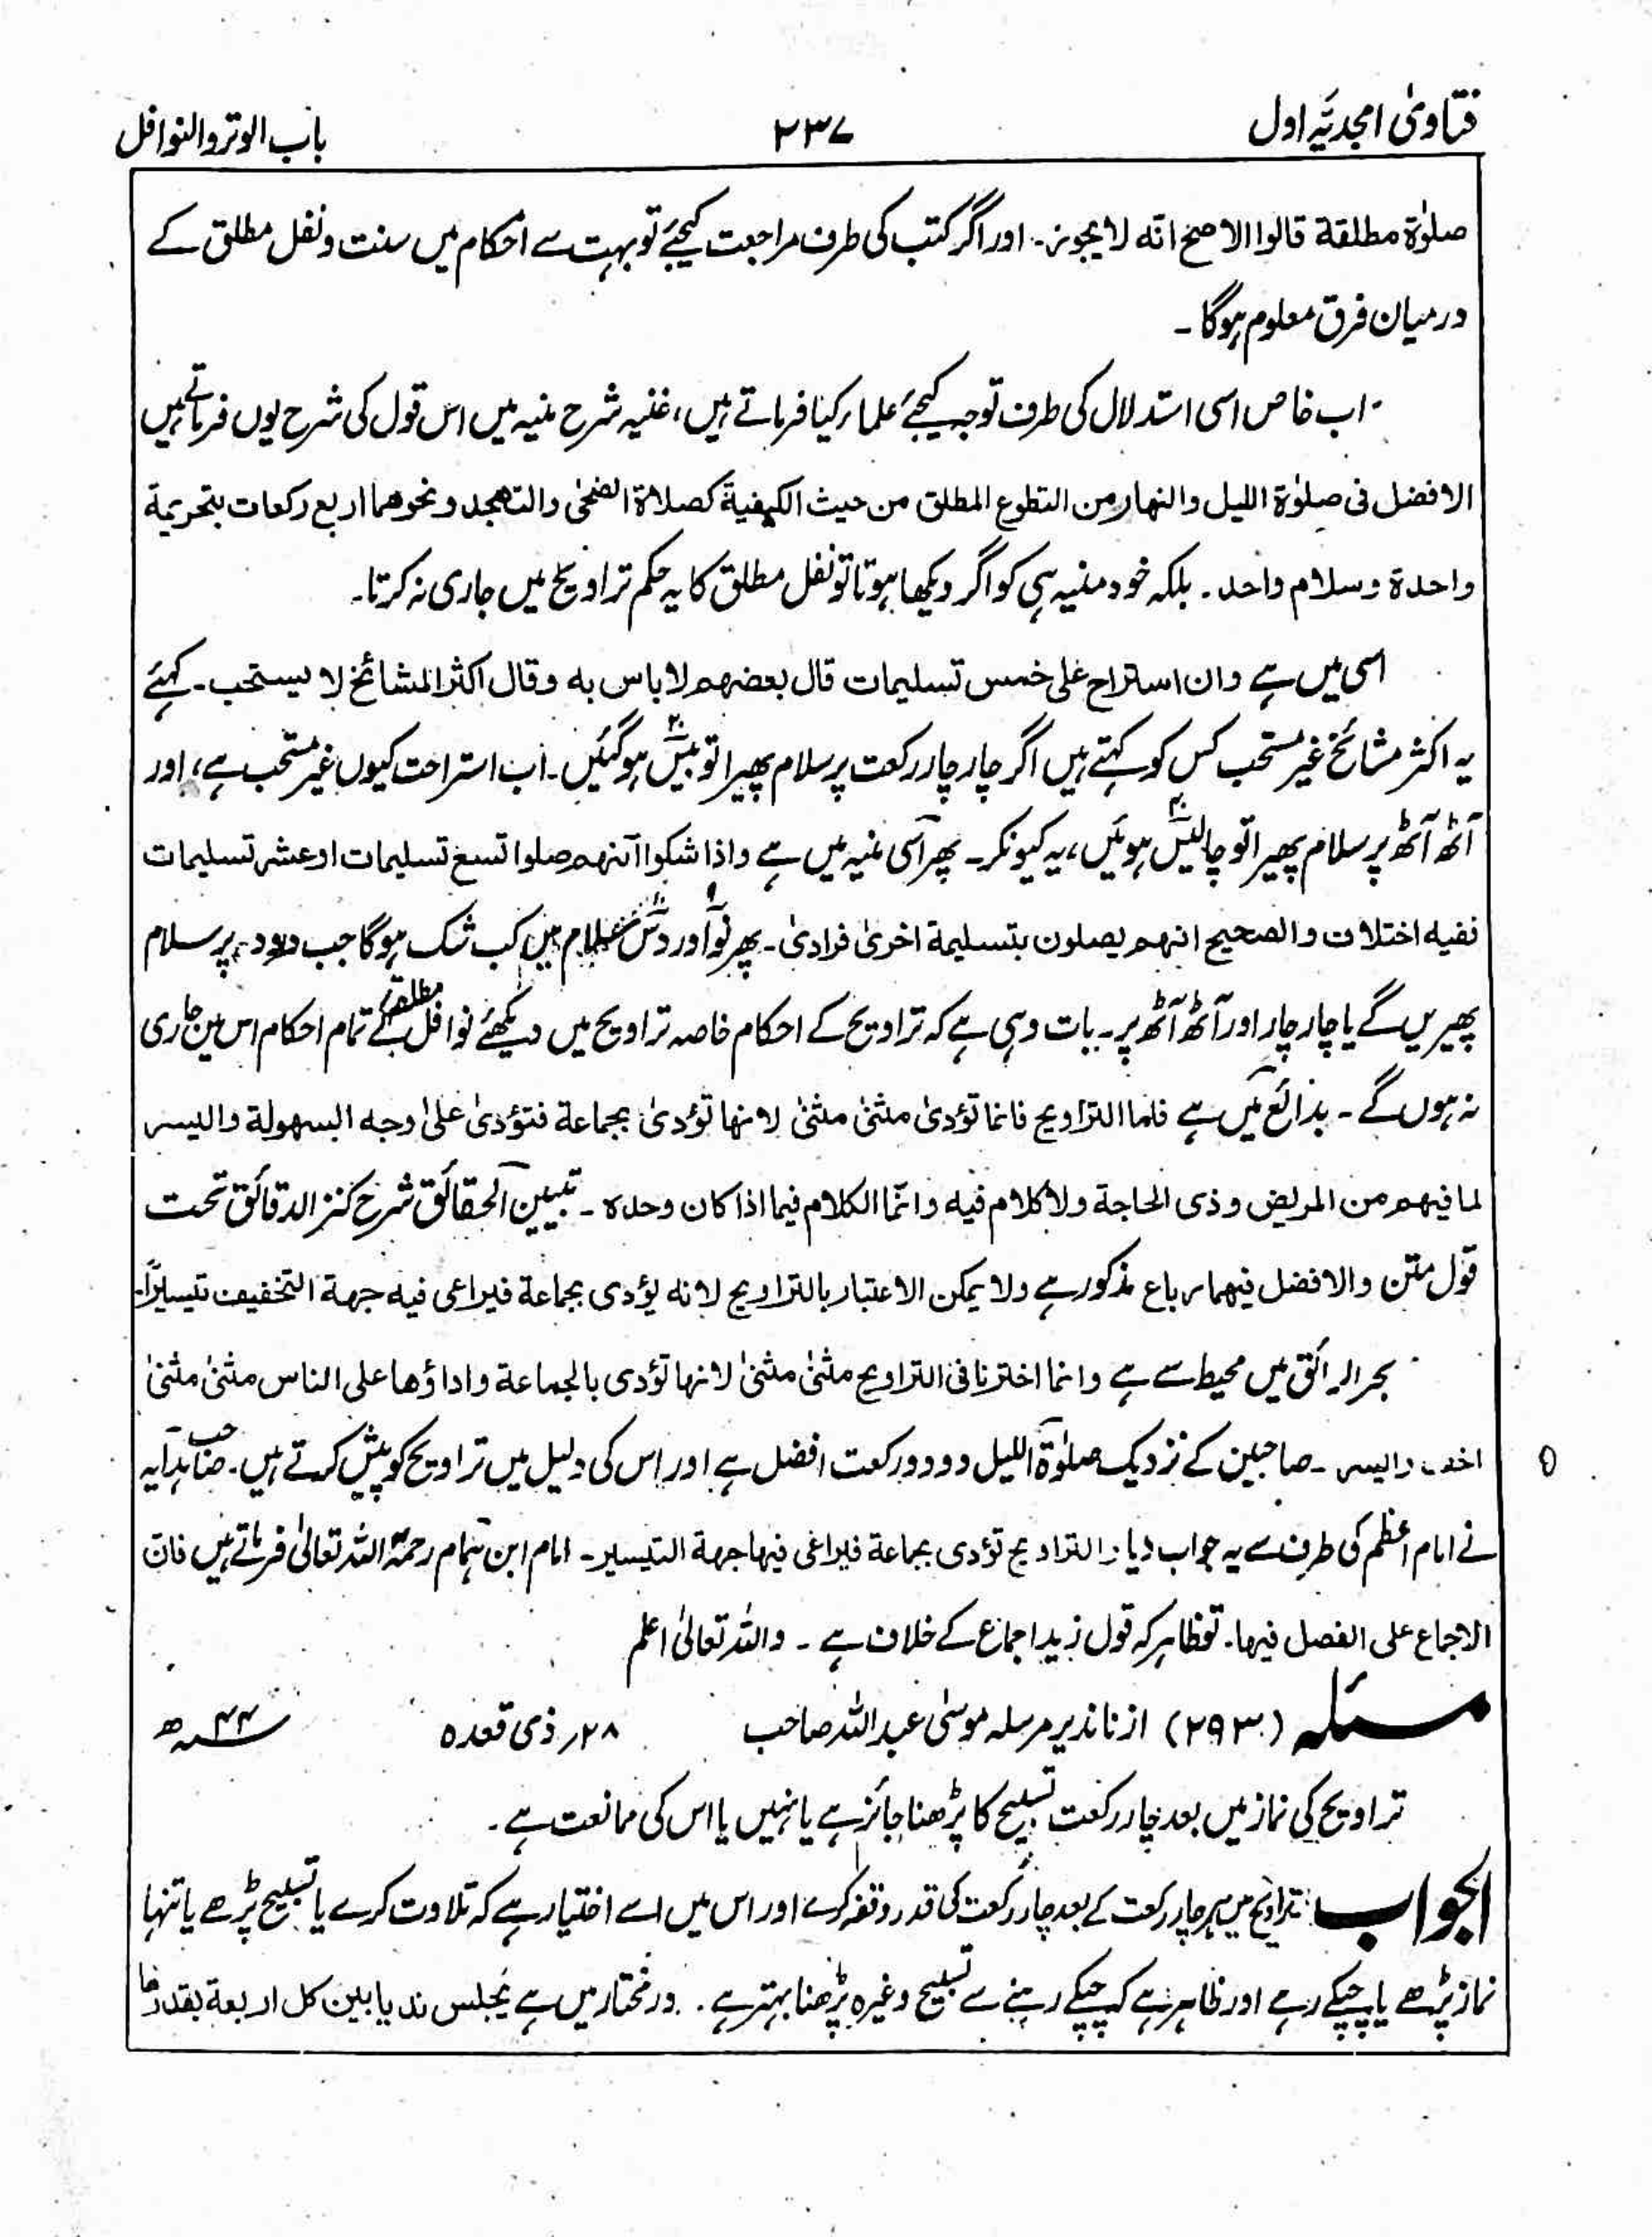 فتاویٰ امجدیہ اول
۲۳۷
باب الوتر والنوافل
صلوٰة مطلقة قالوا الاصح انه لا يجوز۔ اور اگر کتب کی طرف مراجعت کیجئے تو بہت سے احکام میں سنت و نفل مطلق کے
درمیان فرق معلوم ہوگا ۔
اب خاص اسی استدلال کی طرف توجہ کیجئے علماء کیا فرماتے ہیں، غنیہ شرح منیہ میں اس قول کی شرح یوں فرماتے ہیں
الافضل فی صلوٰة الليل والنهار من التطوع المطلق من حيث الكيفية كصلاة الضحیٰ والتهجد ونحوهما اربع ركعات بتحريمة
واحدة وسلام واحد ۔ بلکہ خود منیہ ہی کو اگر دیکھا ہوتا تو نفل مطلق کا یہ حکم تراویح میں جاری نہ کرتا۔
اسی میں ہے وان استراح علی خمس تسليمات قال بعضهم لا باس به وقال اكثر المشائخ لا يستحب۔ کہئے
یہ اکثر مشائخ غیر مستحب کس کو کہتے ہیں اگر چار چار رکعت پر سلام پھیرا تو بیس ۲۰ ہوگئیں۔ اب استراحت کیوں غیر مستحب ہے، اور
آٹھ آٹھ پر سلام پھیرا تو چالیس ۴۰ ہوئیں، یہ کیونکر۔ پھر اسی منیہ میں ہے واذا شكوا انهم صلوا تسع تسليمات او عشر تسليمات
ففيه اختلاف والصحيح انهم يصلون بتسليمة اخریٰ فرادیٰ۔ پھر نو ۹ اور دس ۱۰ سلام میں کب شک ہوگا جب دو دو پر سلام
پھیریں گے یا چار چار اور آٹھ آٹھ پر۔ بات وہی ہے کہ تراویح کے احکام خاصہ تراویح میں دیکھئے نوافل مطلقہ کے تمام احکام اس میں جاری
نہ ہوں گے ۔ بدائع میں ہے فاما التراويح فانما تؤدیٰ مثنیٰ مثنیٰ لانها تؤدیٰ بجماعة فتؤدیٰ علیٰ وجه السهولة واليسر
لما فيهم من المريض وذی الحاجة ولا كلام فيه وانما الكلام فيما اذا كان وحده ۔ تبیین الحقائق شرح کنز الدقائق تحت
قول متن والافضل فيهما رباع مذکور ہے ولا يمكن الاعتبار بالتراويح لانه يؤدی بجماعة فيراعی فيه جهة التخفيف تيسيراً۔
بحر الرائق میں محیط سے ہے وانما اخترنا فی التراويح مثنیٰ مثنیٰ لانها تؤدی بالجماعة واداؤها علی الناس مثنیٰ مثنیٰ
اخف وايسر ۔ صاحبین کے نزدیک صلوٰۃ اللیل دو دو رکعت افضل ہے اور اس کی دلیل میں تراویح کو پیش کرتے ہیں۔ صاحب ہدایہ
نے امام اعظم کی طرف سے یہ جواب دیا والتراويح تؤدی بجماعة فيراعی فيها جهة التيسير۔ امام ابن ہمام رحمۃ اللہ تعالیٰ فرماتے ہیں فان
الاجماع علی الفصل فيها۔ تو ظاہر کہ قول زید اجماع کے خلاف ہے ۔ واللہ تعالیٰ اعلم
مسئلہ (۲۹۳) از ناندیر مرسلہ موسیٰ عبد اللہ صاحب ۲۸؍ ذی قعدہ ۴۴ سنہ ھ
تراویح کی نماز میں بعد چار رکعت تسبیح کا پڑھنا جائز ہے یا نہیں یا اس کی ممانعت ہے۔
الجواب تراویح میں ہر چار رکعت کے بعد چار رکعت کی قدر وقفہ کرے اور اس میں اسے اختیار ہے کہ تلاوت کرے یا تسبیح پڑھے یا تنہا
نماز پڑھے یا چپکے رہے اور ظاہر ہے کہ چپکے رہنے سے تسبیح وغیرہ پڑھنا بہتر ہے ۔ درمختار میں ہے يجلس ندبا بين كل اربعة بقدرها